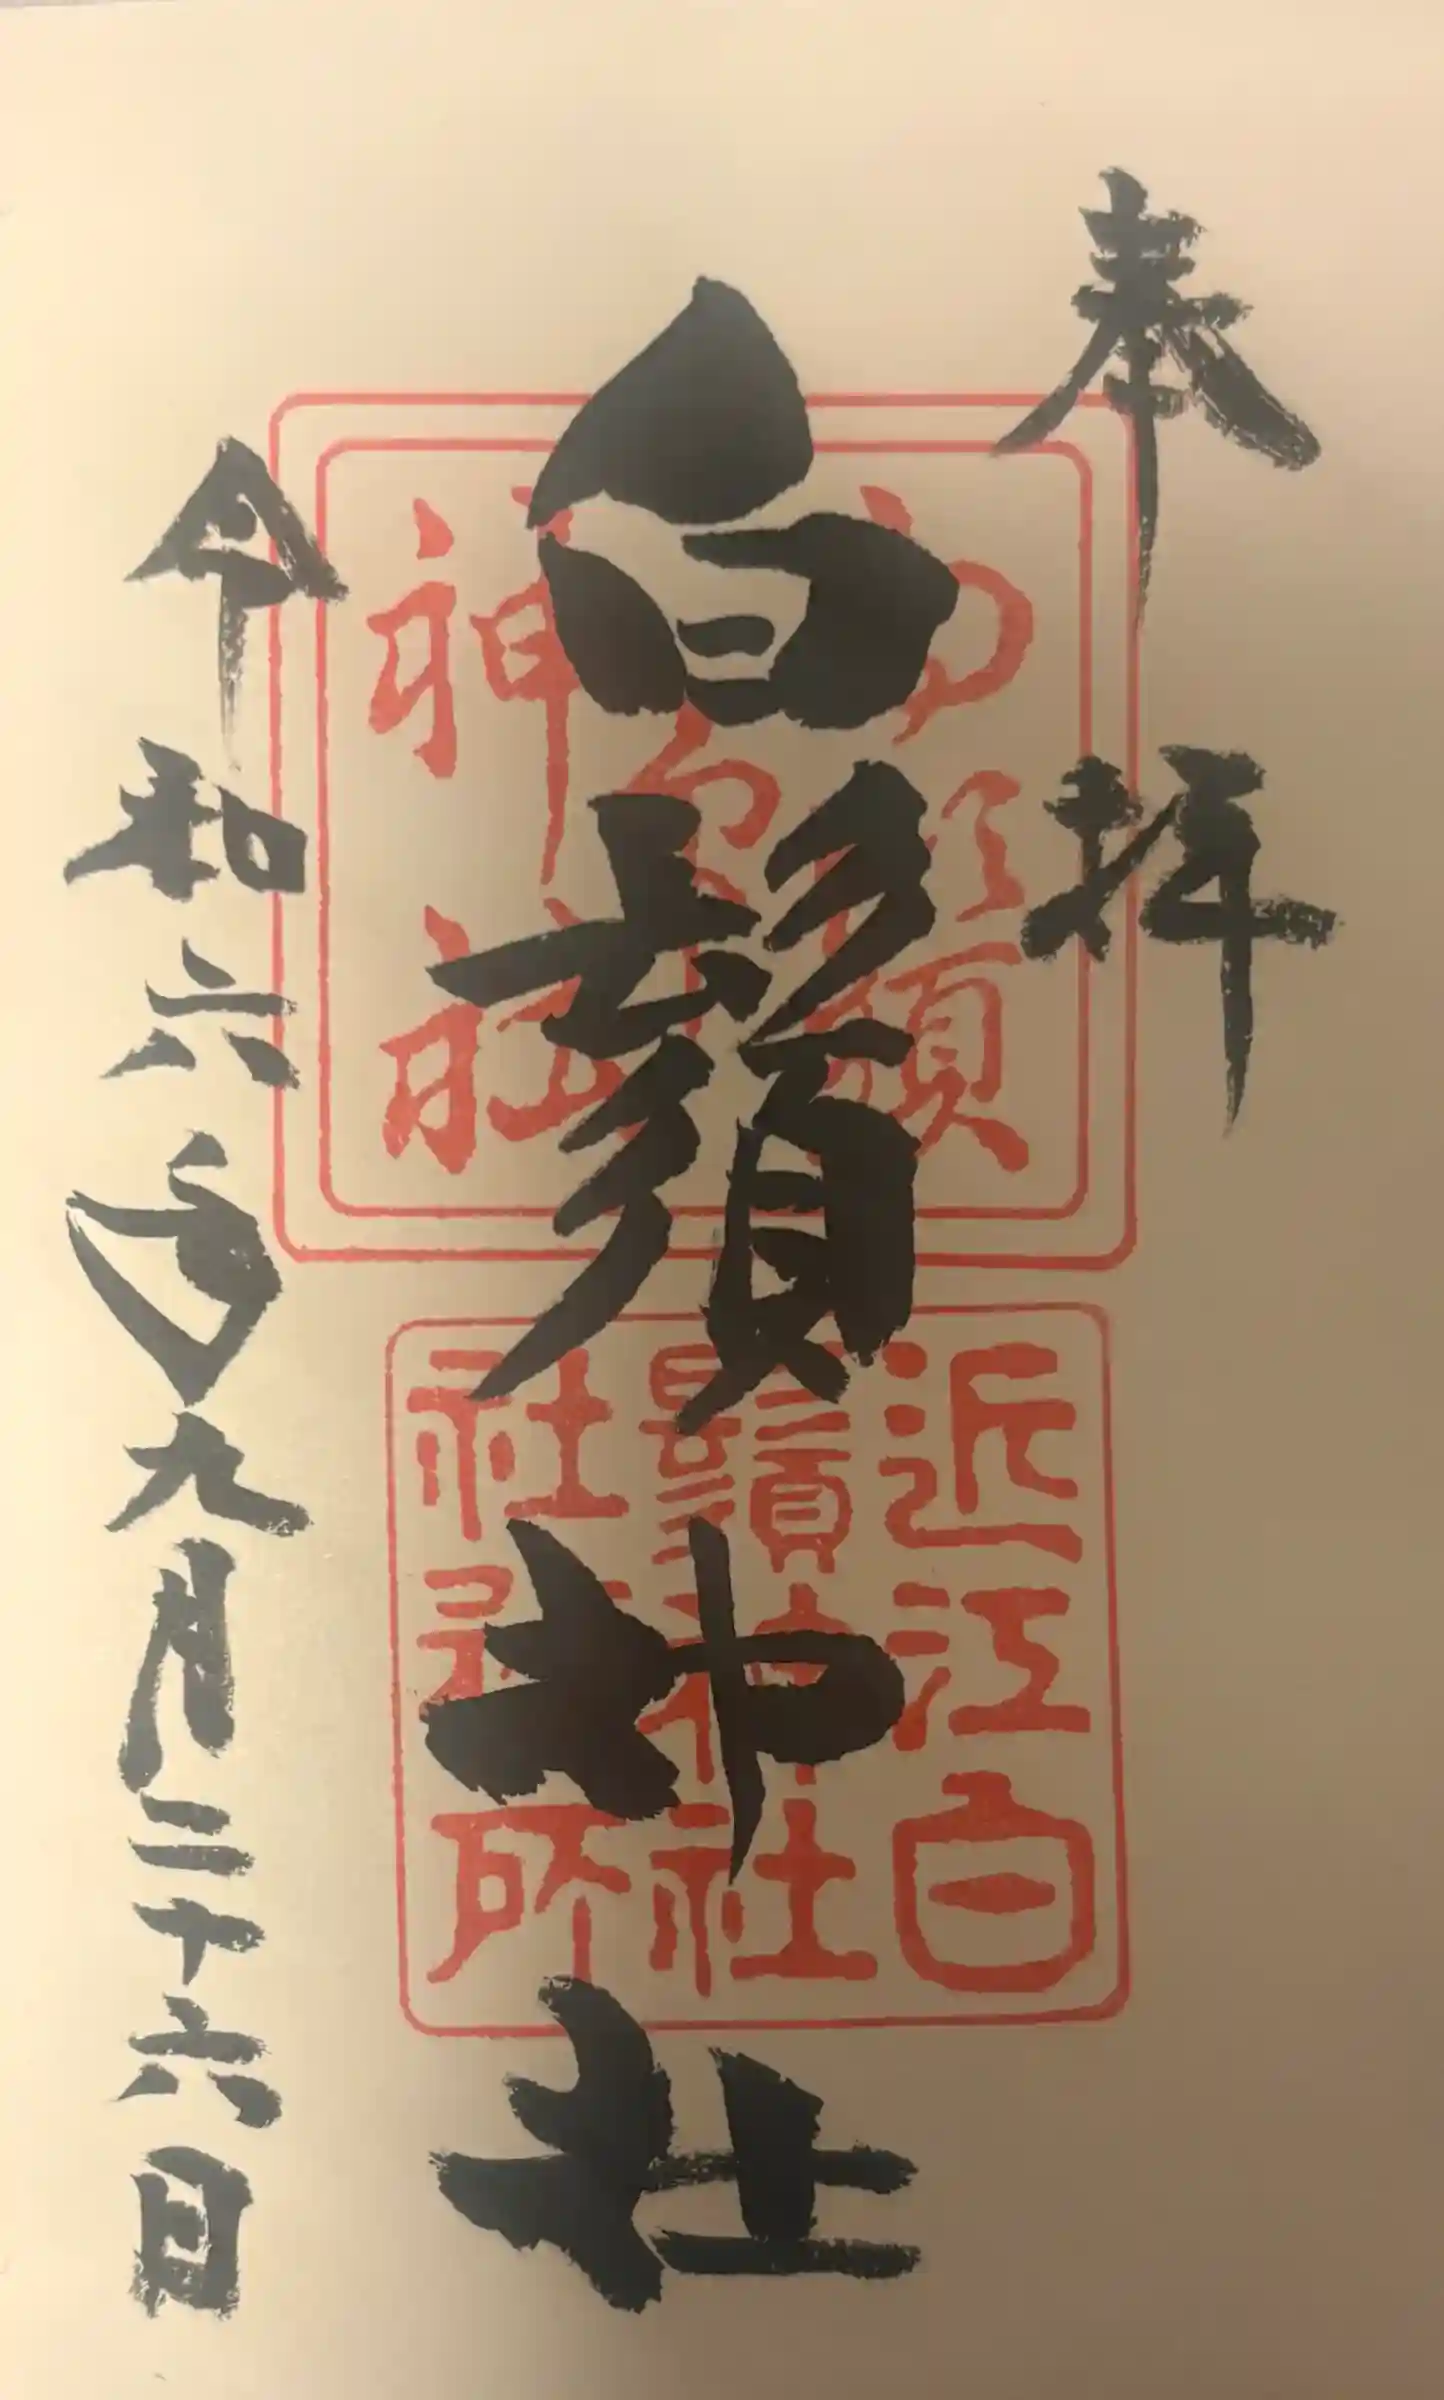 奉拝
白鬚神社
令和六年九月二十六日
近江白
鬚神社
社務所